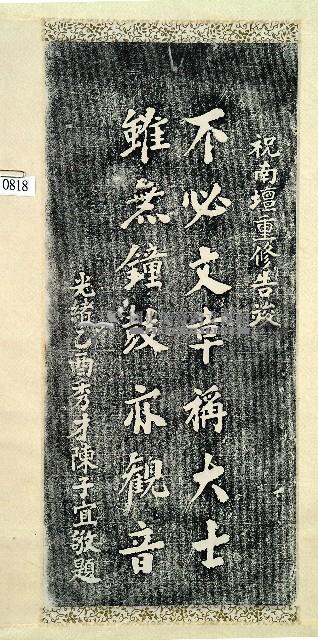 祝南壇重修告竣
不必文章稱大士
雖無鐘鼓亦觀音
光緒乙酉秀才陳子宜敬題
0818